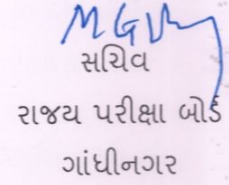 સચિવ
રાજ્ય પરીક્ષા બોર્ડ
ગાંધીનગર